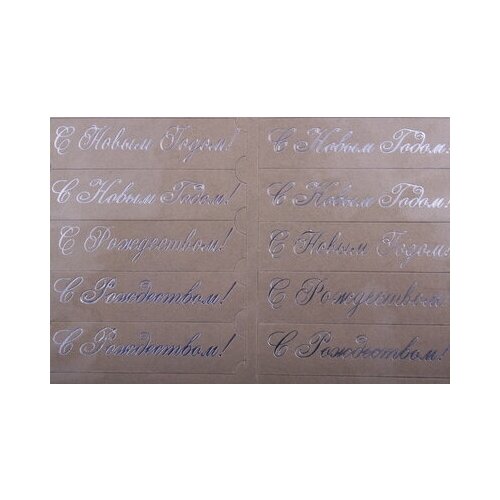 С Новым Годом!
С Новым Годом!
С Рождеством!
С Рождеством!
С Рождеством!
С Новым Годом!
С Новым Годом!
С Новым Годом!
С Рождеством
С Рождеством!